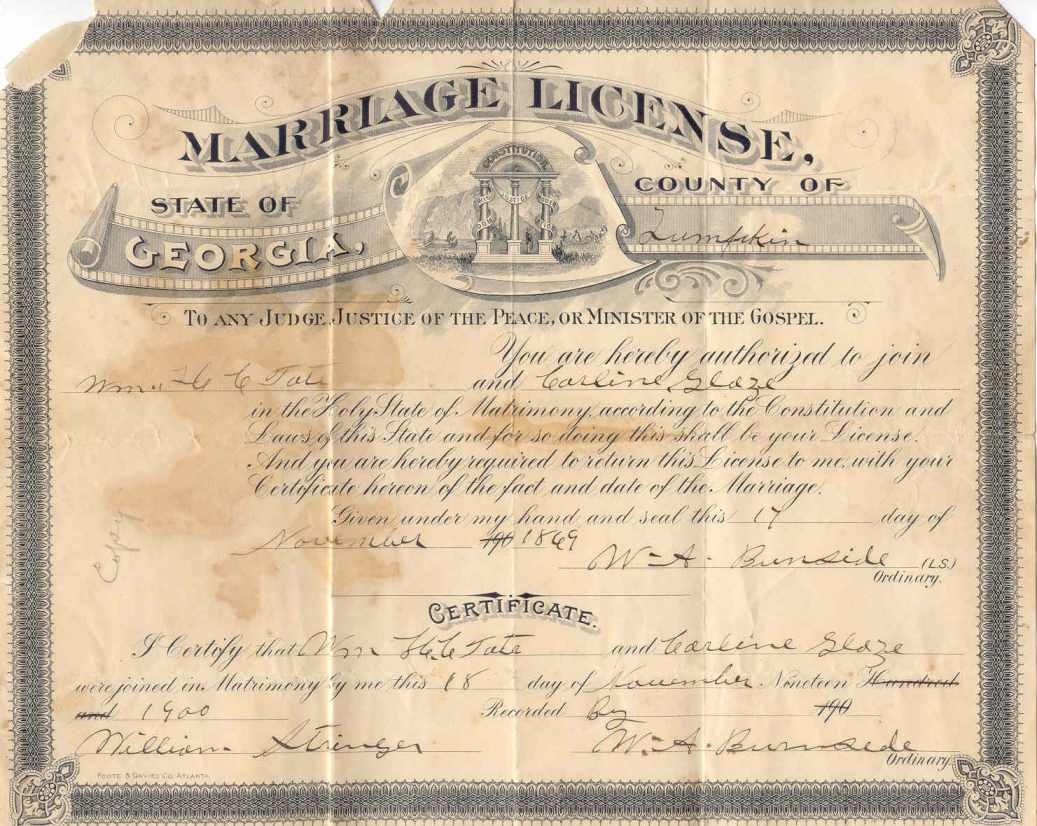 MARRIAGE LICENSE,
CONSTITUTION
STATE OF GEORGIA,
COUNTY OF Lumpkin
TO ANY JUDGE, JUSTICE OF THE PEACE, OR MINISTER OF THE GOSPEL.
You are hereby authorized to join
Wm. H C Tate and Carline Glaze
in the Holy State of Matrimony, according to the Constitution and
Laws of this State and for so doing this shall be your License.
And you are hereby required to return this License to me, with your
Certificate hereon of the fact and date of the Marriage.
Given under my hand and seal this 17 day of
November 190 1869
W-A. Burnside (L.S.)
Ordinary.
Copy
CERTIFICATE.
I Certify that Wm H.C Tate and Carline Glaze
were joined in Matrimony by me this 18 day of November Nineteen Hundred
and 1900 Recorded By 190
William Stringer W-A. Burnside
Ordinary.
FOOTE & DAVIES CO. ATLANTA.